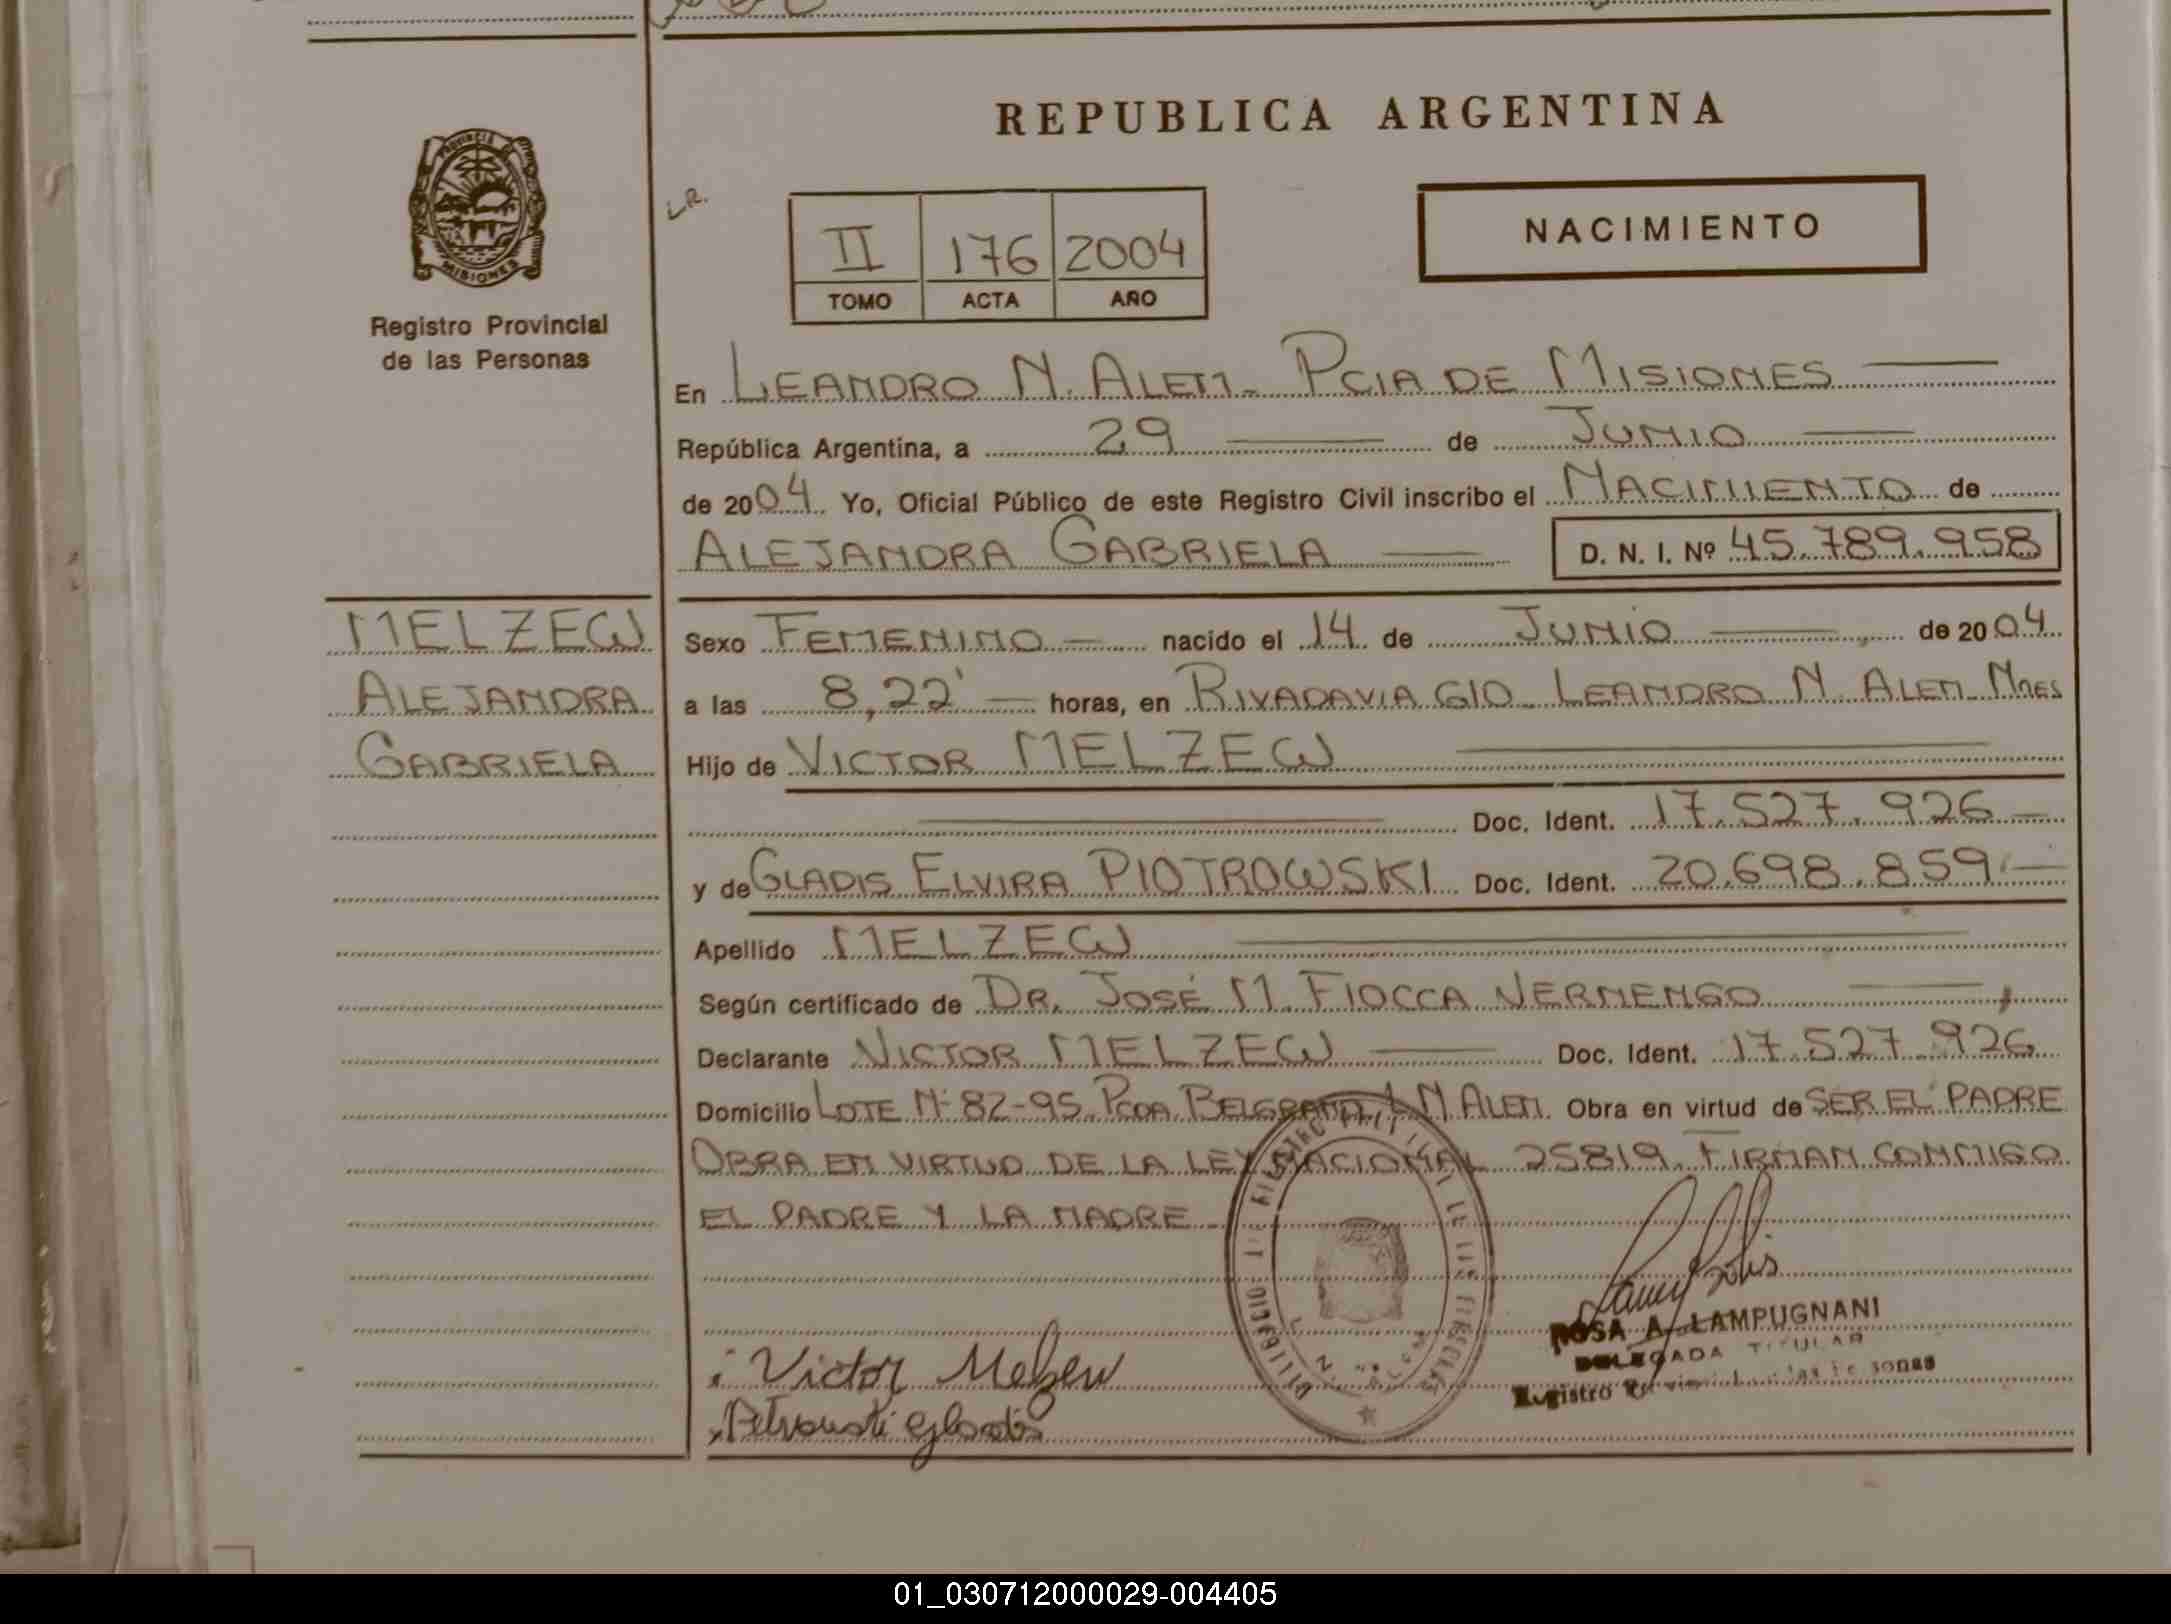 REPUBLICA ARGENTINA
PROVINCIA DE
MISIONES
Registro Provincial
de las Personas
L.R.
II 176 2004
TOMO ACTA AÑO
NACIMIENTO
En LEANDRO N. ALEM - PCIA DE MISIONES
República Argentina, a 29 de JUNIO
de 2004. Yo, Oficial Público de este Registro Civil inscribo el NACIMIENTO de
ALEJANDRA GABRIELA D. N. I. Nº 45.789.958
MELZEW
ALEJANDRA
GABRIELA
Sexo FEMENINO nacido el 14 de JUNIO de 2004
a las 8,22' horas, en RIVADAVIA 610 - LEANDRO N. ALEM - MNES
Hijo de VICTOR MELZEW
Doc. Ident. 17.527.926
y de GLADIS ELVIRA PIOTROWSKI Doc. Ident. 20.698.859
Apellido MELZEW
Según certificado de DR. JOSÉ M. FIOCCA VERNENGO
Declarante VICTOR MELZEW Doc. Ident. 17.527.926
Domicilio LOTE Nº 82-95. PCDA. BELGRANO. L.N. ALEM. Obra en virtud de SER EL PADRE
OBRA EN VIRTUD DE LA LEY NACIONAL 25819. FIRMAN CONMIGO
EL PADRE Y LA MADRE
ROSA A. LAMPUGNANI
DELEGADA TITULAR
Registro
Victor Melzew
Gladis
01_030712000029-004405